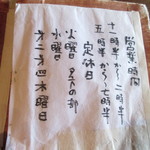 営業時間
十一時半から二時半
五時半から七時半
定休日
火曜日 夕方の部
水曜日
第二第四木曜日